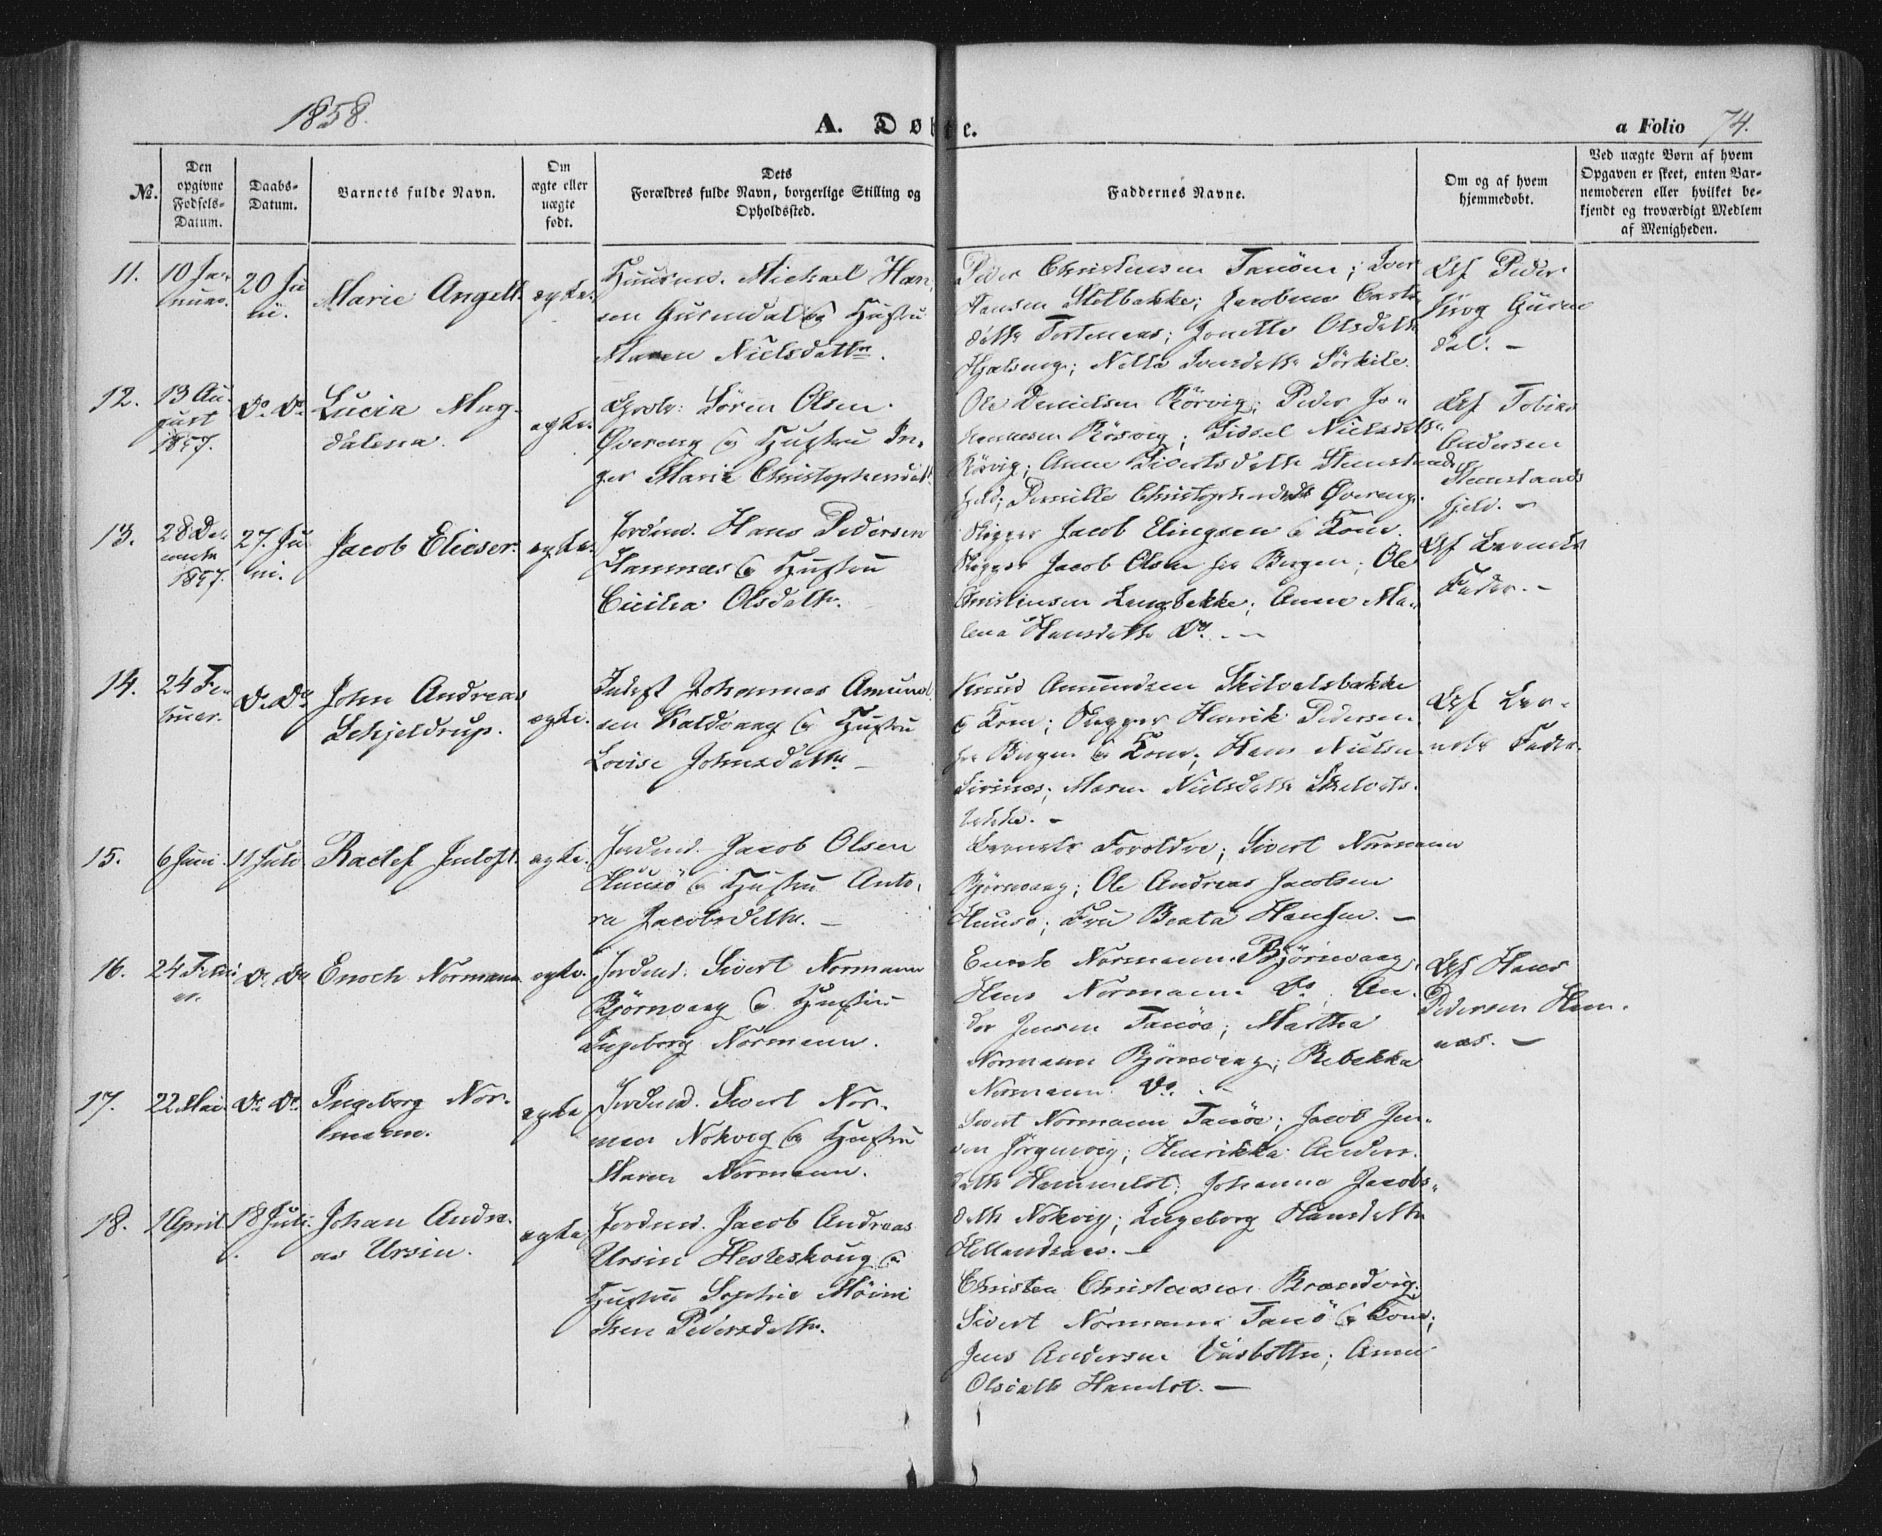 1858.
A. Døbte.
a Folio 74.
No.
Den opgivne Fødsels-Datum.
Daabs-Datum.
Barnets fulde Navn.
Om ægte eller uægte født.
Dets Forældres fulde Navn, borgerlige Stilling og Opholdssted.
Faddernes Navne.
Om og af hvem hjemmedøbt.
Ved uægte Børn af hvem
Opgaven er skeet, enten Bar-
nemoderen eller hvilket be-
kjendt og troværdigt Medlem
af Menigheden.
11.
10 Ja-
nuar.
20 Ju
ni.
Marie Angell.
ægte.
Huusm. Michael Han
sen &amp; Hustru
Maren Nielsdatter.
Peder Christensen Tanöen; Iver
Hansen; Jacobine
datter; Jonette Olsdatter
; Iversdatter
Af Peder
Krog
dal. -
12.
13 Au-
gust
1857.
Do Do
Lucia Mag-
dalena.
ægte.
Søren Olsen
Övereng & Hustru In-
ger Marie Christophersdatt
Ole Danielsen Rörvig; Peder Jo-
hannesen Rörvig; Sidsel Nielsdatter
Rörvig; Anne Sivertsdatter
Pernille Christophersdatter Övereng.
Af Tobias
Andersen
Stemlands
fjeld. -
13.
28 De-
cembr
1857.
27. Ju
ni.
Jacob Elieser.
ægte.
Jordmd. Hans Pedersen
Hamnæs & Hustru
Cicilia Olsdatter.
Skipper Jacob Elingsen & Kone.
Skipper Jacob Olsen fra Bergen; Ole
Christensen Langbakke; Anne Ma-
lena Hansdatter Do. -
Af Barnets
Fader. -
14.
24 Fe-
bruar.
Do. Do
John Andreas
Schjeldrup.
ægte.
Inderst Johannes Amund
sen Kaldvaag & Hustru
Lovise Johnsdatter. -
Knud Amundsen Skilvolsbakke
& Kone; Skipper Henrik Pedersen
fra Bergen & Kone; Hans Nielsen
; Maren Nielsdatter
bakke. -
Af Bar-
nets Fader.
15.
6 Juni.
11 Juli
ægte.
Jordmd. Jacob Olsen
Huusö & Hustru Anto-
ra Jacobsdatter. -
Barnets Forældre; Sivert Normann
Björnvaag; Ole Andreas Jacobsen
Huusö; Fru Beata Hansen. -
16.
24 Febru
ar.
Do. Do
Enoch Normann
ægte.
Jordmd. Sivert Normann
Björnvaag & Hustru
Ingeborg Normann.
Enoch Normann Björnvaag,
Hans Normann Do, An-
der Jensen Tanöe; Martha
Normann Björnvaag; Rebekka
Normann Do. -
Af Hans
Pedersen Ham-
næs. -
17.
22 Mai
Do. Do.
Ingeborg Nor-
mann.
ægte
Jordmd. Sivert Nor-
man Nokvig & Hustru
Maren Normann.
Sivert Normann Tanöe; Jacob Jen-
sen Jörgenvig; Henrikka Anders-
datter; Johanna Jacobs-
datter Nokvig; Ingeborg Hansdatter
Hellandsaas. -
18.
1 April
18 Juli.
Johan Andre-
as Ursin.
ægte
Jordmd. Jacob Andreas
Ursin Hesteskoug &
Hustru Sophie
Pedersdatter.
Christen Christensen Brændvig;
Sivert Normann Tanö & Kone;
Jens Andersen Visbotten; Anne
Olsdatter. -